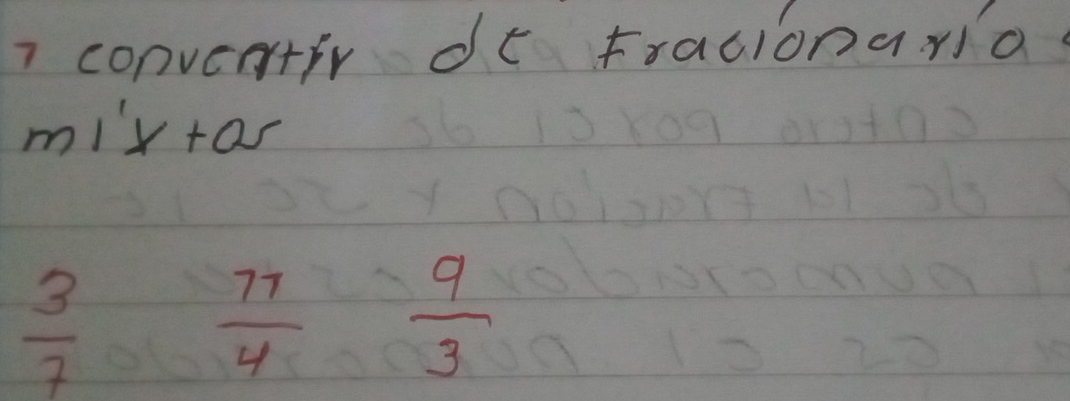 1 convertir de fracionario a
mixtos
3/7 11/4 9/3